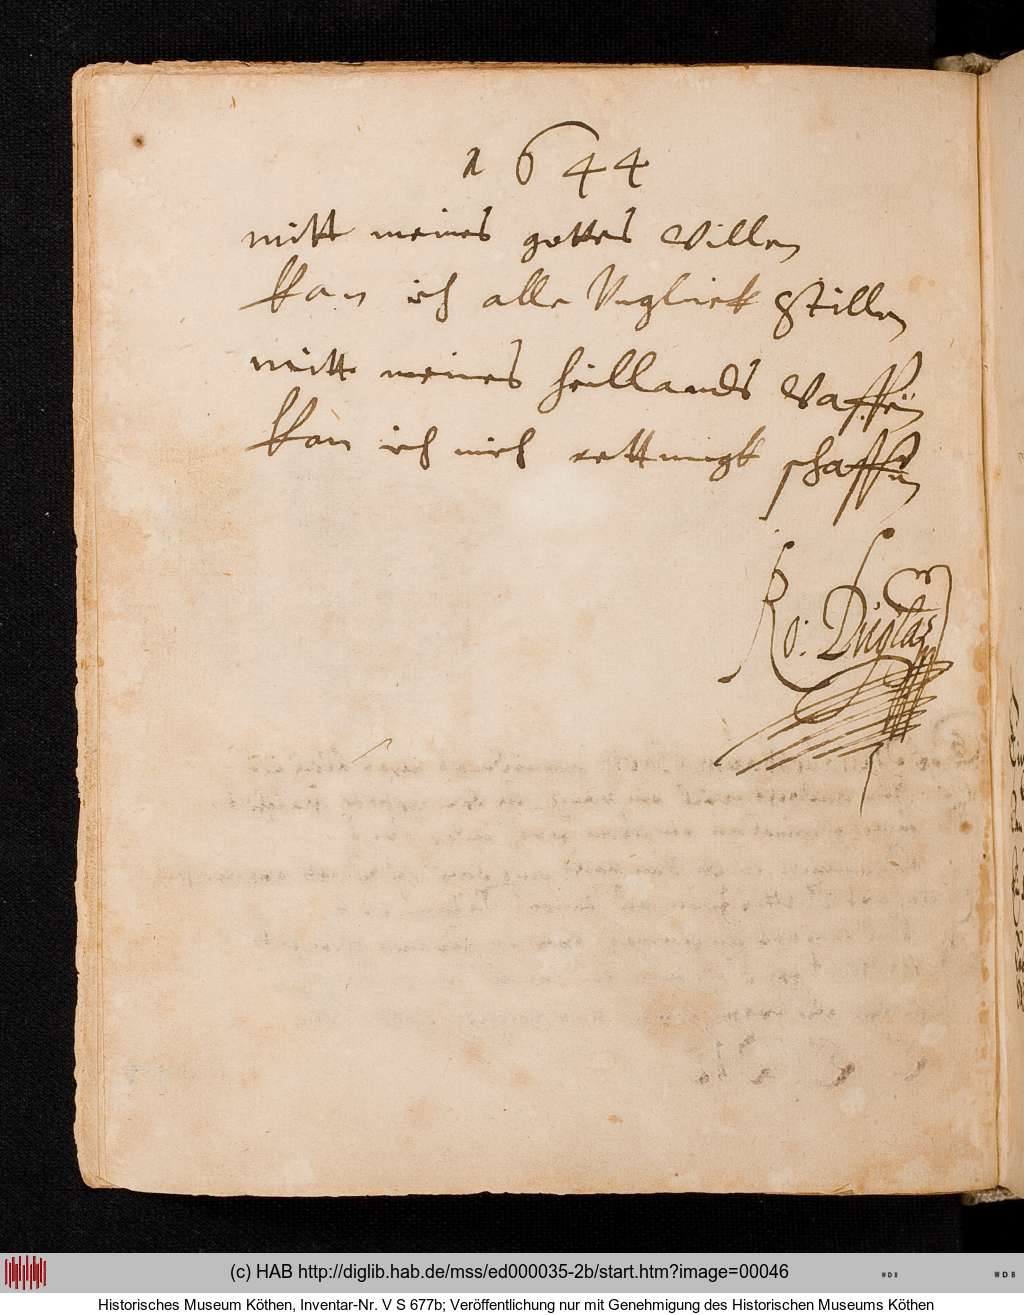 1644
mitt meines gottes Willen
Kan ich alle Vnglück Stillen
mitt meines heillands Waffen
Kan ich mich rettungk schaffen
Ro: Duglas
(c) HAB http://diglib.hab.de/mss/ed000035-2b/start.htm?image=00046
WDB
WDB
Historisches Museum Köthen, Inventar-Nr. V S 677b; Veröffentlichung nur mit Genehmigung des Historischen Museums Köthen